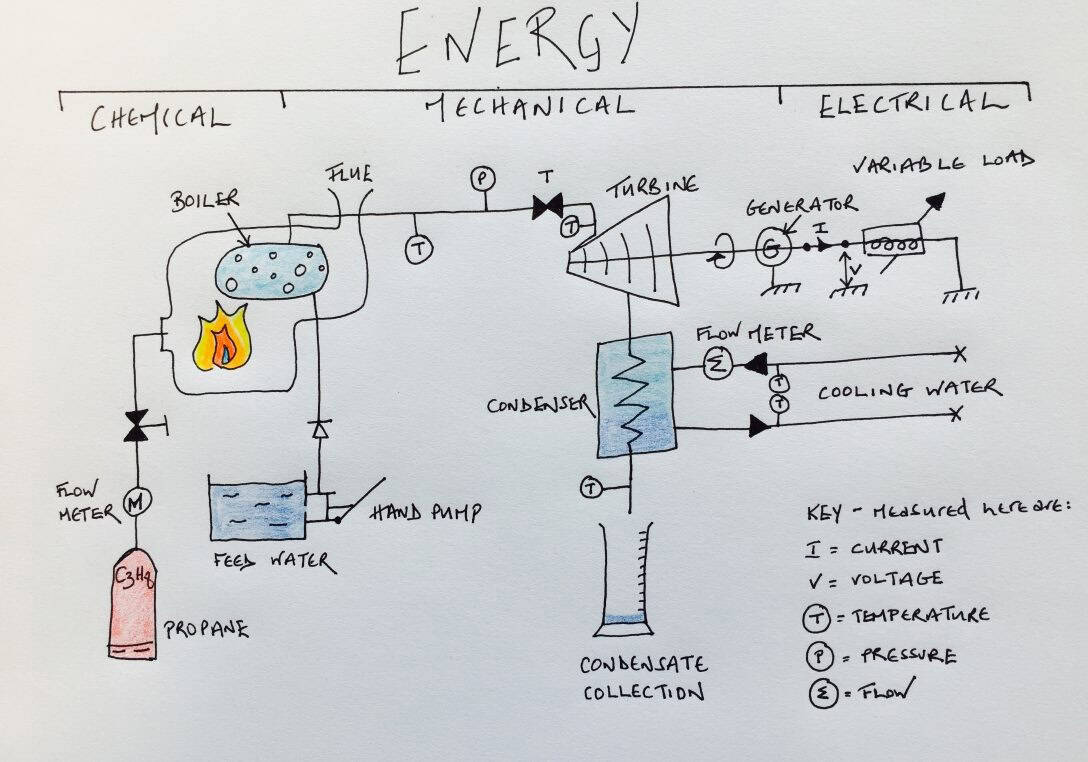 ENERGY
CHEMICAL
MECHANICAL
ELECTRICAL
VARIABLE LOAD
FLUE
BOILER
P
T
TURBINE
GENERATOR
I
T
T
G
V
FLOW METER
Σ
T
T
COOLING WATER
CONDENSER
FLOW
METER
M
HAND PUMP
T
FEED WATER
C3H8
PROPANE
CONDENSATE
COLLECTION
KEY - Measured here are:
I = CURRENT
V = VOLTAGE
T = TEMPERATURE
P = PRESSURE
Σ = FLOW